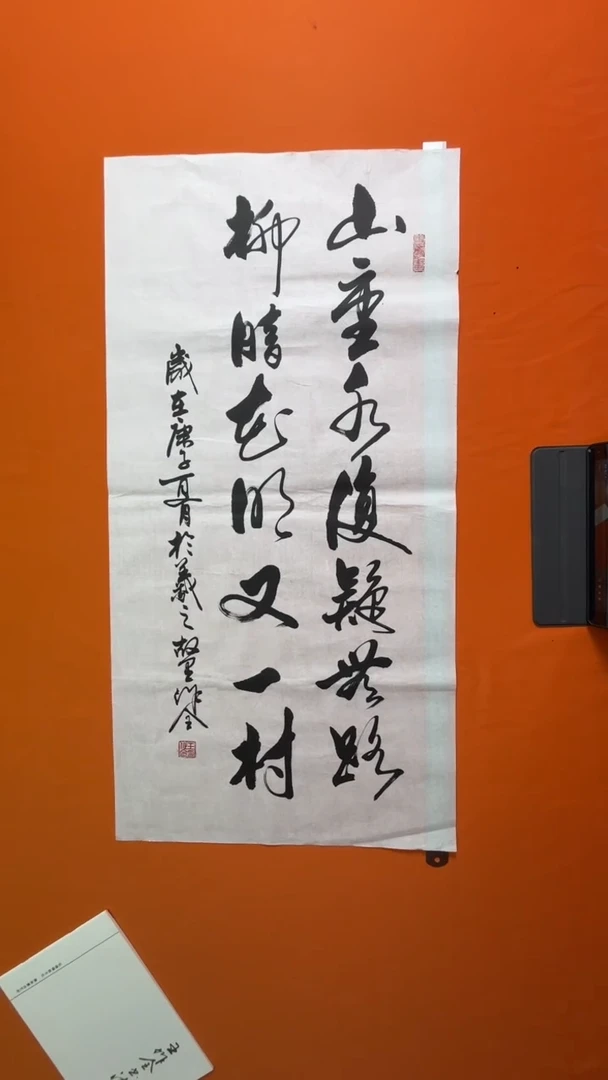 山重水復疑無路
柳暗花明又一村
歲在庚子夏月於羲之故里